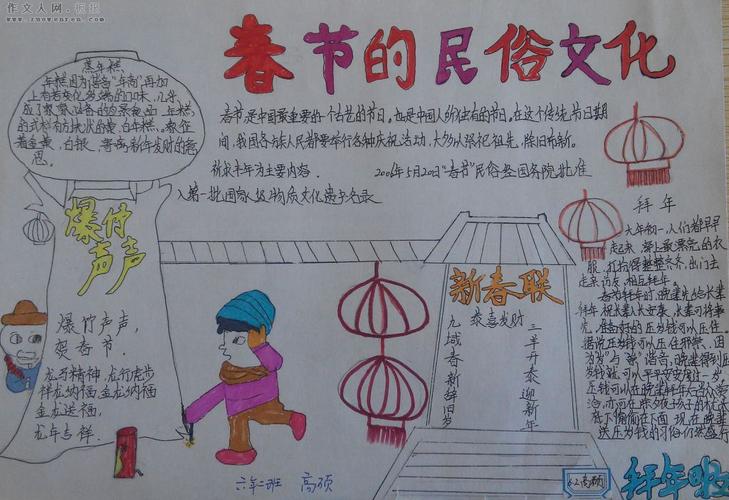 作文人网.板报
www.zuowenren.com
春节的民俗文化
蒸年糕
年糕因为谐音"年高",再加
上有着变化多端的口味,几乎
成了家家必备的应景食品.年糕
的式样有方块状的黄,白年糕,象征
着金黄,白银,寄寓新年发财的意
思.
春节是中国最重要的一个古老的节日,也是中国人所独有的节日,在这个传统节日期
间,我国各族人民都要举行各种庆祝活动,大多以祭祀祖先,除旧布新,
祈求丰年为主要内容.2006年5月20日"春节"民俗经国务院批准
入第一批国家级物质文化遗产名录
爆竹
声声
爆竹声声,
贺春节.
龙马精神,龙行虎步
祥龙纳福,金龙纳福
金龙送福,
龙年吉祥.
新春联
恭喜发财
三羊开泰迎新年
九域春新辞旧岁
拜年
大年初一,人们都早早
起来,穿上最漂亮的衣
服,打扮得整整齐齐,出门去
走亲访友,相互拜年.
春节拜年时,晚辈先给长辈
拜年,祝长辈人长寿安康,长辈可将事
先准备好的压岁钱可以压住
据说压岁钱可以压住邪祟,因
为"岁"与"祟"谐音,晚辈得到压
岁钱就可以平平安安度过一岁,
压钱可以在晚辈拜年后当众赏
给,亦可在除夕夜孩子的枕头
底下偷偷在下面,现在,晚辈
送压岁钱的习俗仍然盛行
拜年啦
六年二班 高硕
6.2高硕